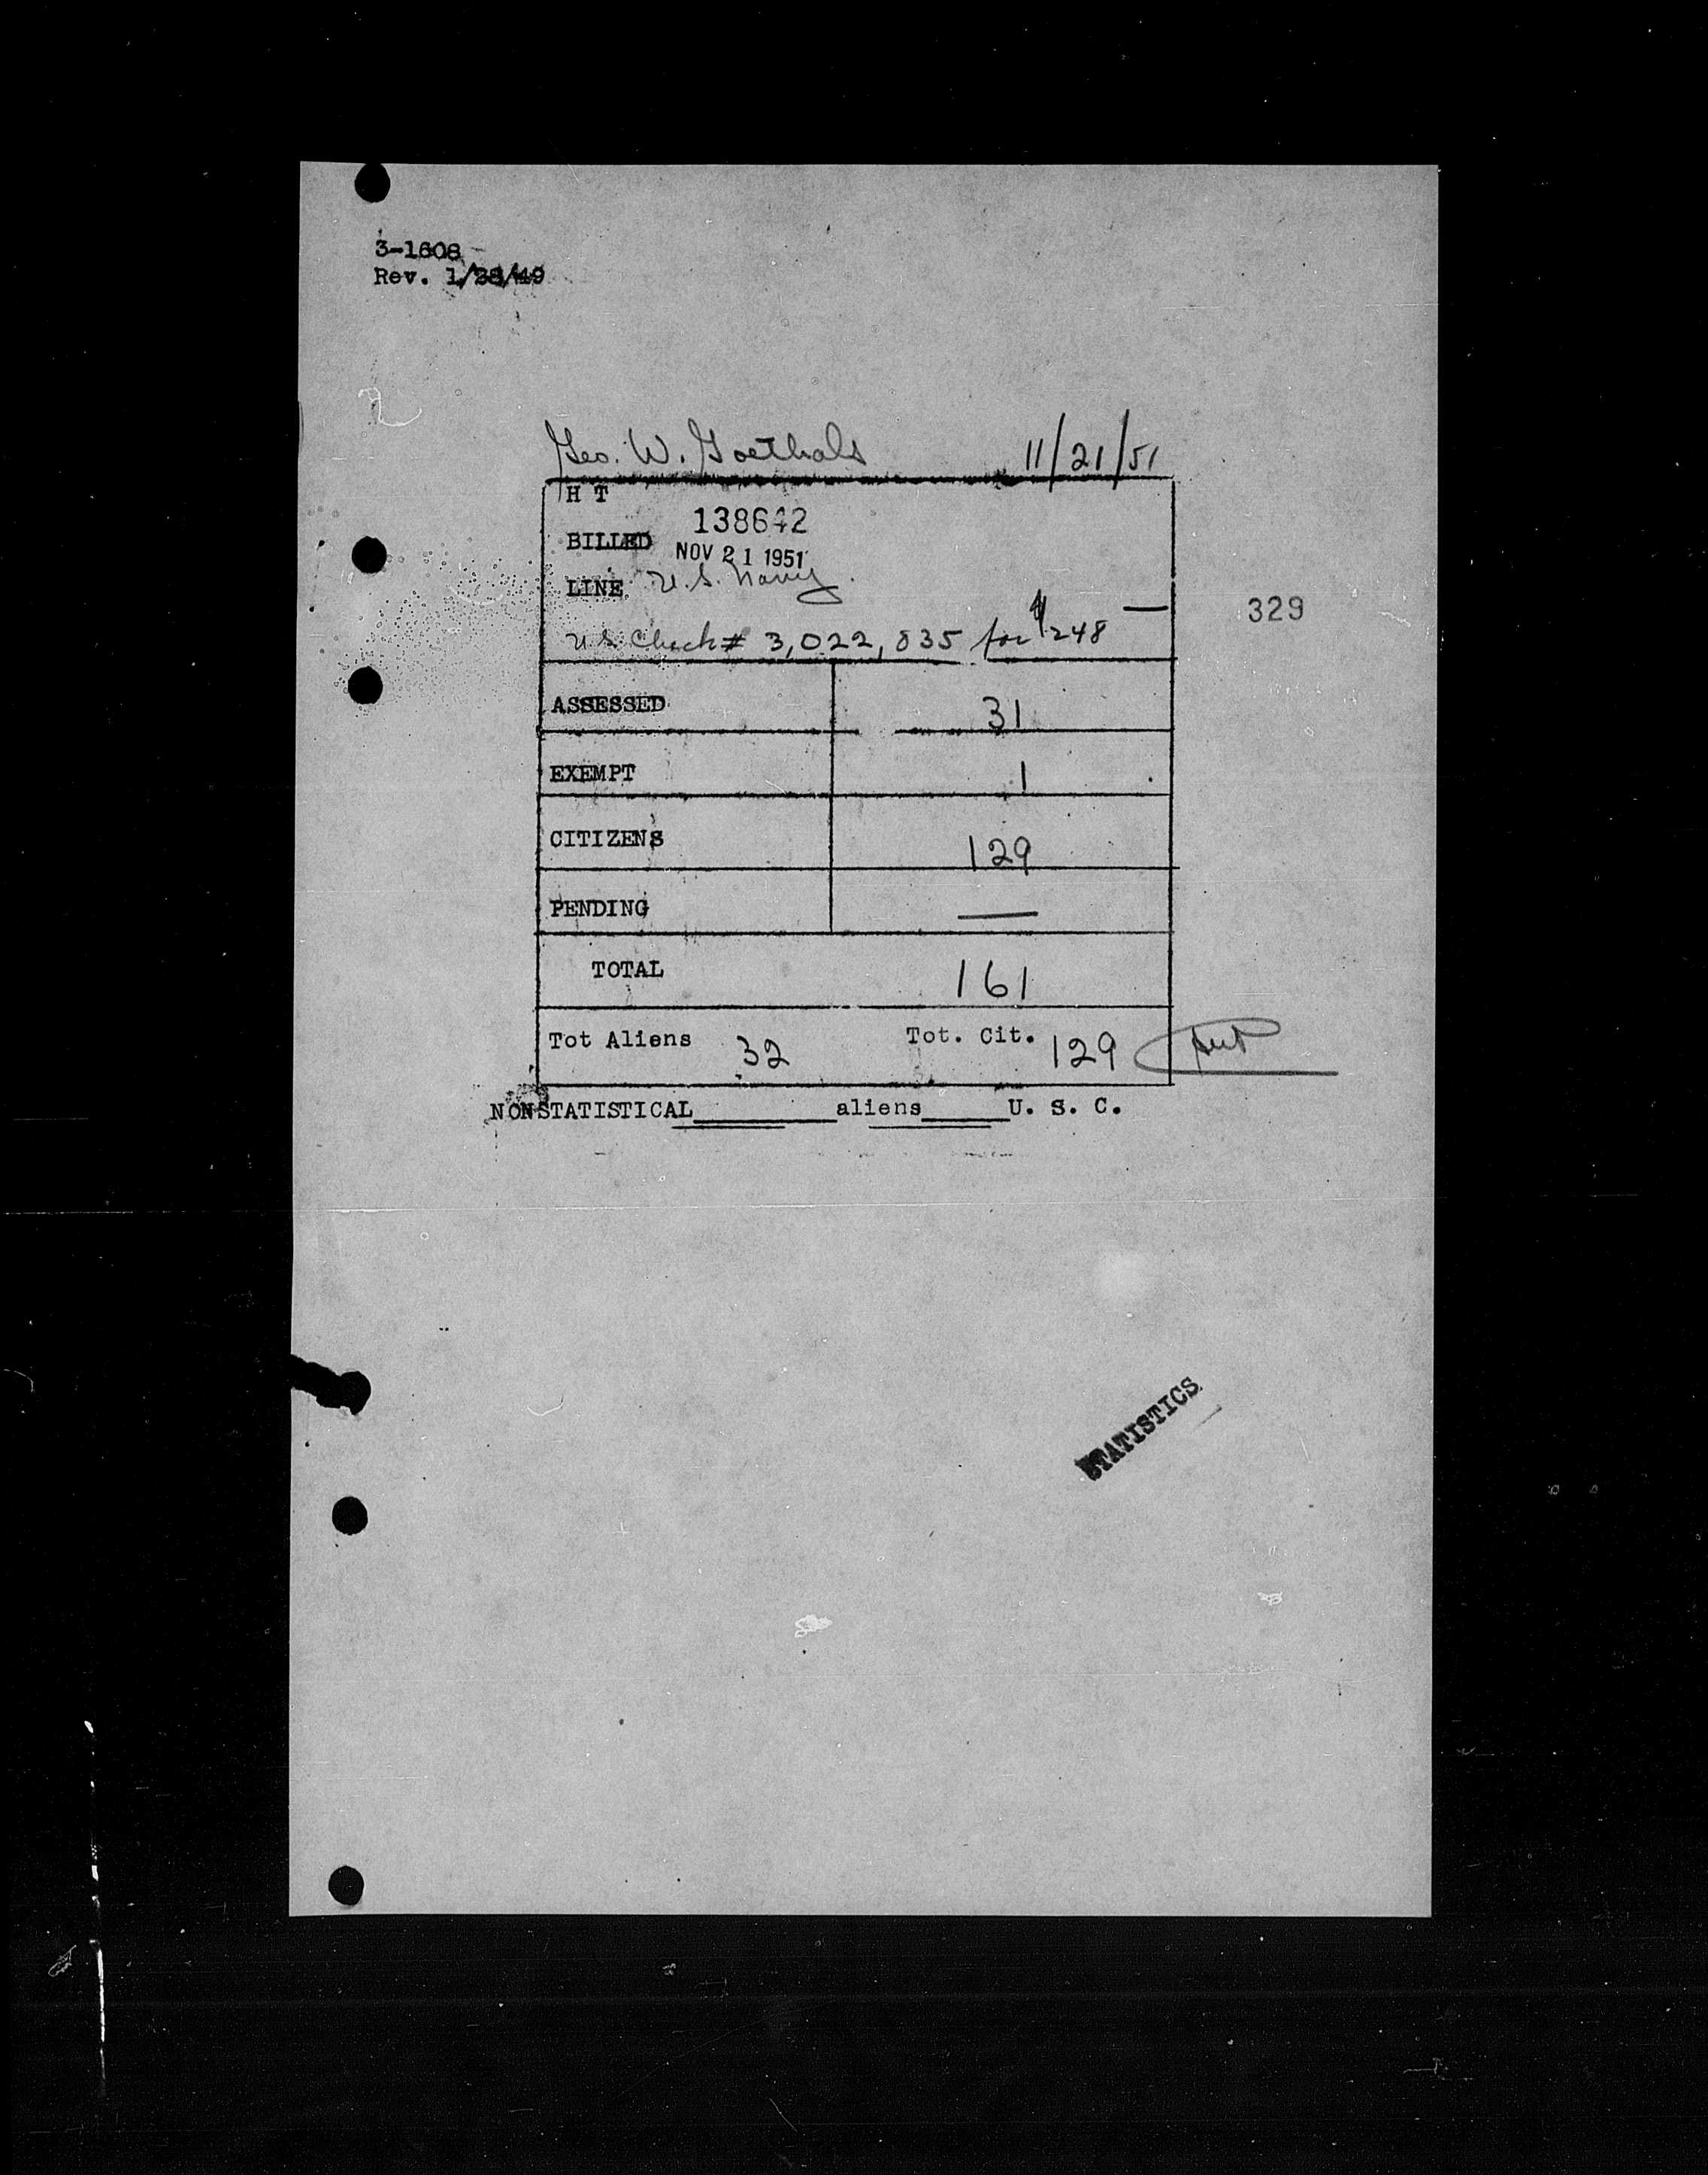 3-1608
Rev. 1/28/49
Geo. W. Goethals 11/21/51
H T
138642
BILLED NOV 21 1951
LINE U.S. Navy
329
U.S. Check # 3,022,835 for $248 —
ASSESSED 31
EXEMPT 1
CITIZENS 129
PENDING —
TOTAL 161
Tot Aliens 32 Tot. Cit. 129
NONSTATISTICAL aliens U. S. C.
STATISTICS